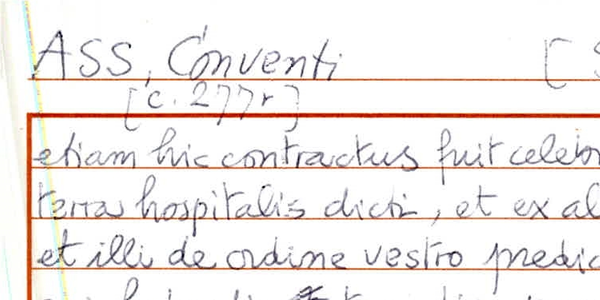 ASS, Conventi [
[c. 277r]
etiam hic contractus fuit celebr
terra hospitalis dicti, et ex al
et illi de ordine vestro predic